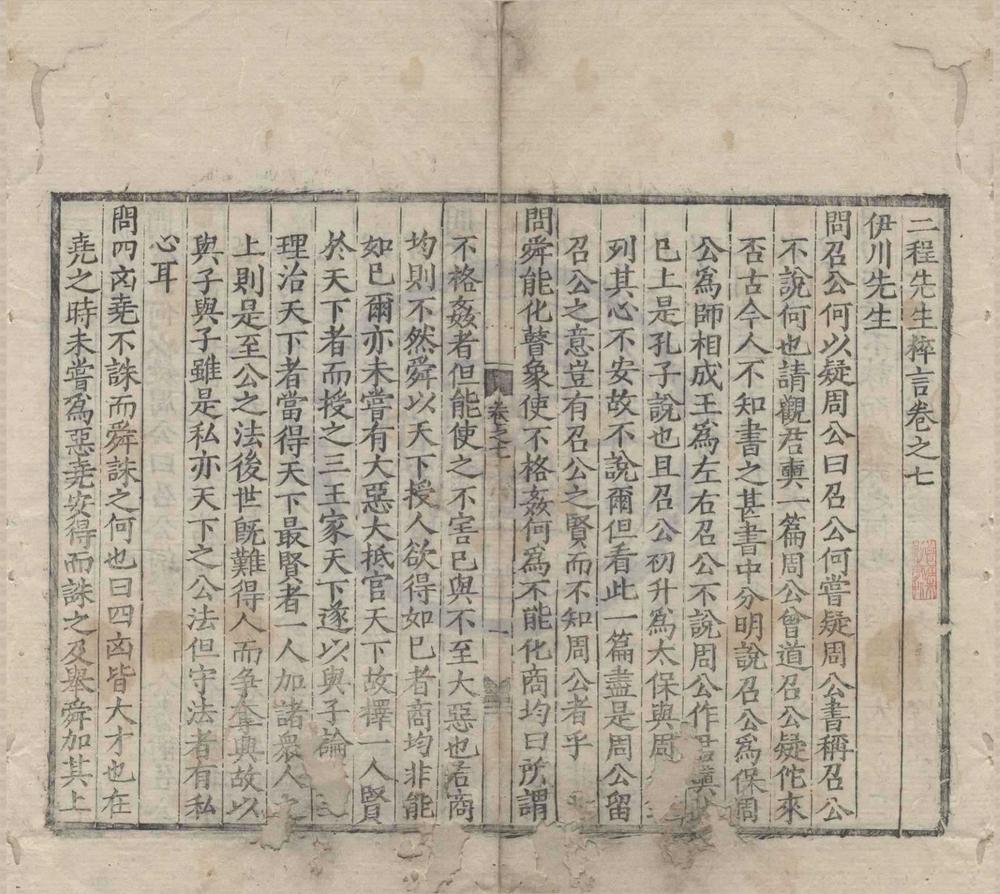 二程先生粹言卷之七
伊川先生
問召公何以疑周公曰召公何嘗疑周公書稱召公
不說何也請觀君奭一篇周公曾道召公疑佗來
否古今人不知書之甚書中分明說召公爲保周
公爲師相成王爲左右召公不說周公作君奭此
已上是孔子說也且召公初升爲太保與周
列其心不安故不說爾但看此一篇盡是周公留
召公之意豈有召公之賢而不知周公者乎
問舜能化瞽象使不格姦何爲不能化商均曰所謂
不格姦者但能使之不害己與不至大惡也若商
均則不然舜以天下授人欲得如已者商均非能
如已爾亦未嘗有大惡大抵官天下故擇一人賢
於天下者而授之三王家天下遂以與子論
理治天下者當得天下最賢者一人加諸衆人之
上則是至公之法後世旣難得人而爭奪興故以
與子與子雖是私亦天下之公法但守法者有私
心耳
問四凶堯不誅而舜誅之何也曰四凶皆大才也在
堯之時未嘗爲惡堯安得而誅之及舉舜加其上
卷之七
一